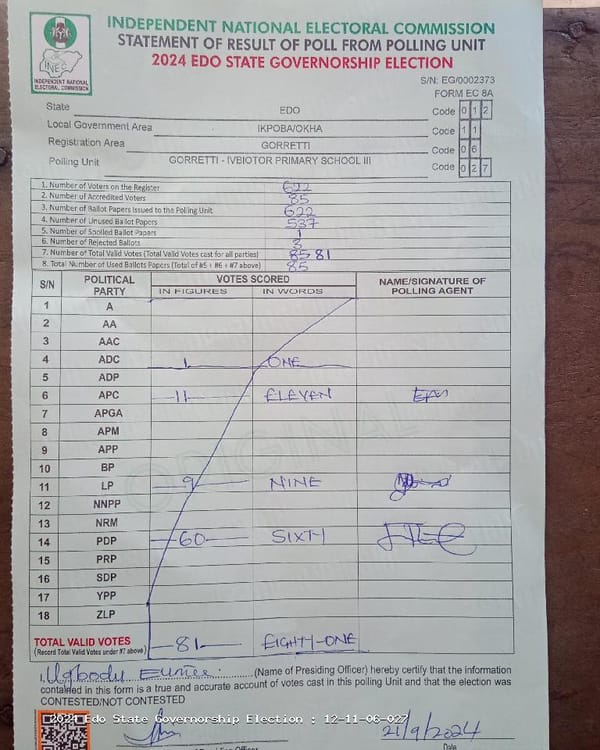 INDEPENDENT NATIONAL ELECTORAL COMMISSION
STATEMENT OF RESULT OF POLL FROM POLLING UNIT
2024 EDO STATE GOVERNORSHIP ELECTION
INEC
INDEPENDENT NATIONAL ELECTORAL COMMISSION
S/N: EG/0002373
FORM EC 8A
State EDO Code 0 1 2
Local Government Area IKPOBA/OKHA Code 1 1
Registration Area GORRETTI Code 0 6
Polling Unit GORRETTI - IVBIOTOR PRIMARY SCHOOL III Code 0 2 7
1. Number of Voters on the Register 622
2. Number of Accredited Voters 85
3. Number of Ballot Papers Issued to the Polling Unit 622
4. Number of Unused Ballot Papers 537
5. Number of Spoiled Ballot Papers 1
6. Number of Rejected Ballots 3
7. Number of Total Valid Votes (Total Valid Votes cast for all parties) 85 81
8. Total Number of Used Ballots Papers (Total of #5 + #6 + #7 above) 85
S/N POLITICAL PARTY VOTES SCORED NAME/SIGNATURE OF POLLING AGENT
IN FIGURES IN WORDS
1 A
2 AA
3 AAC
4 ADC 1 ONE
5 ADP
6 APC 11 ELEVEN
7 APGA
8 APM
9 APP
10 BP
11 LP 9 NINE
12 NNPP
13 NRM
14 PDP 60 SIXTY
15 PRP
16 SDP
17 YPP
18 ZLP
ORIGINAL
TOTAL VALID VOTES 81 EIGHTY-ONE
(Record Total Valid Votes under #7 above)
I, Ugbody (Name of Presiding Officer) hereby certify that the information
contained in this form is a true and accurate account of votes cast in this polling unit and that the election was
CONTESTED/NOT CONTESTED
2024 Edo State Governorship Election : 12-11-06-027
21/9/2024
Date